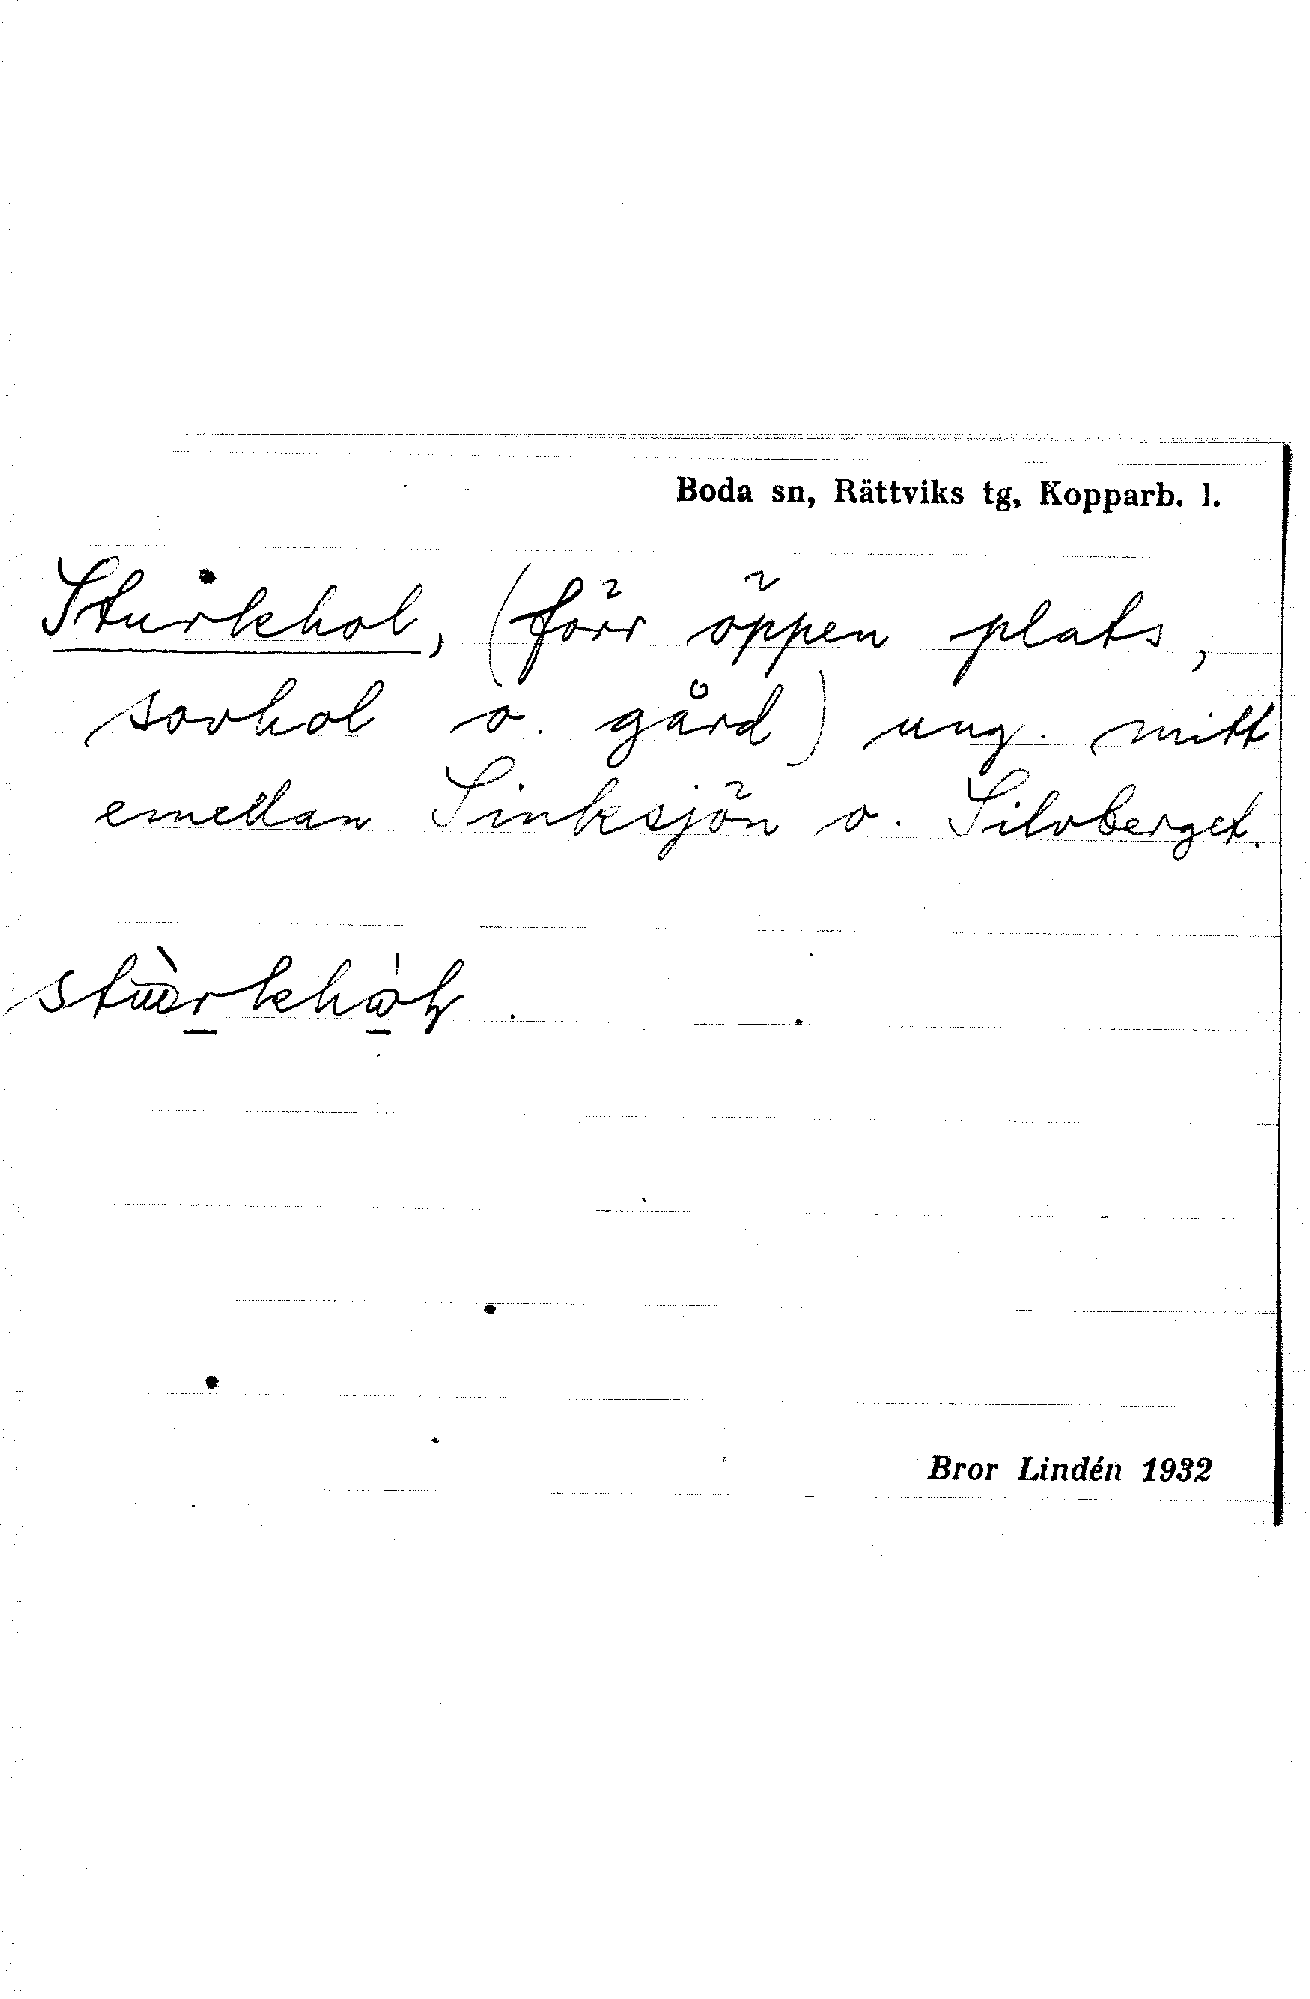 Boda sn, Rättviks tg, Kopparb. l.
Sturkhol, (förr öppen plats,
sovhol o. gård) ung. mitt
emellan Sinksjön o. Silvberget.
Bror Lindén 1932